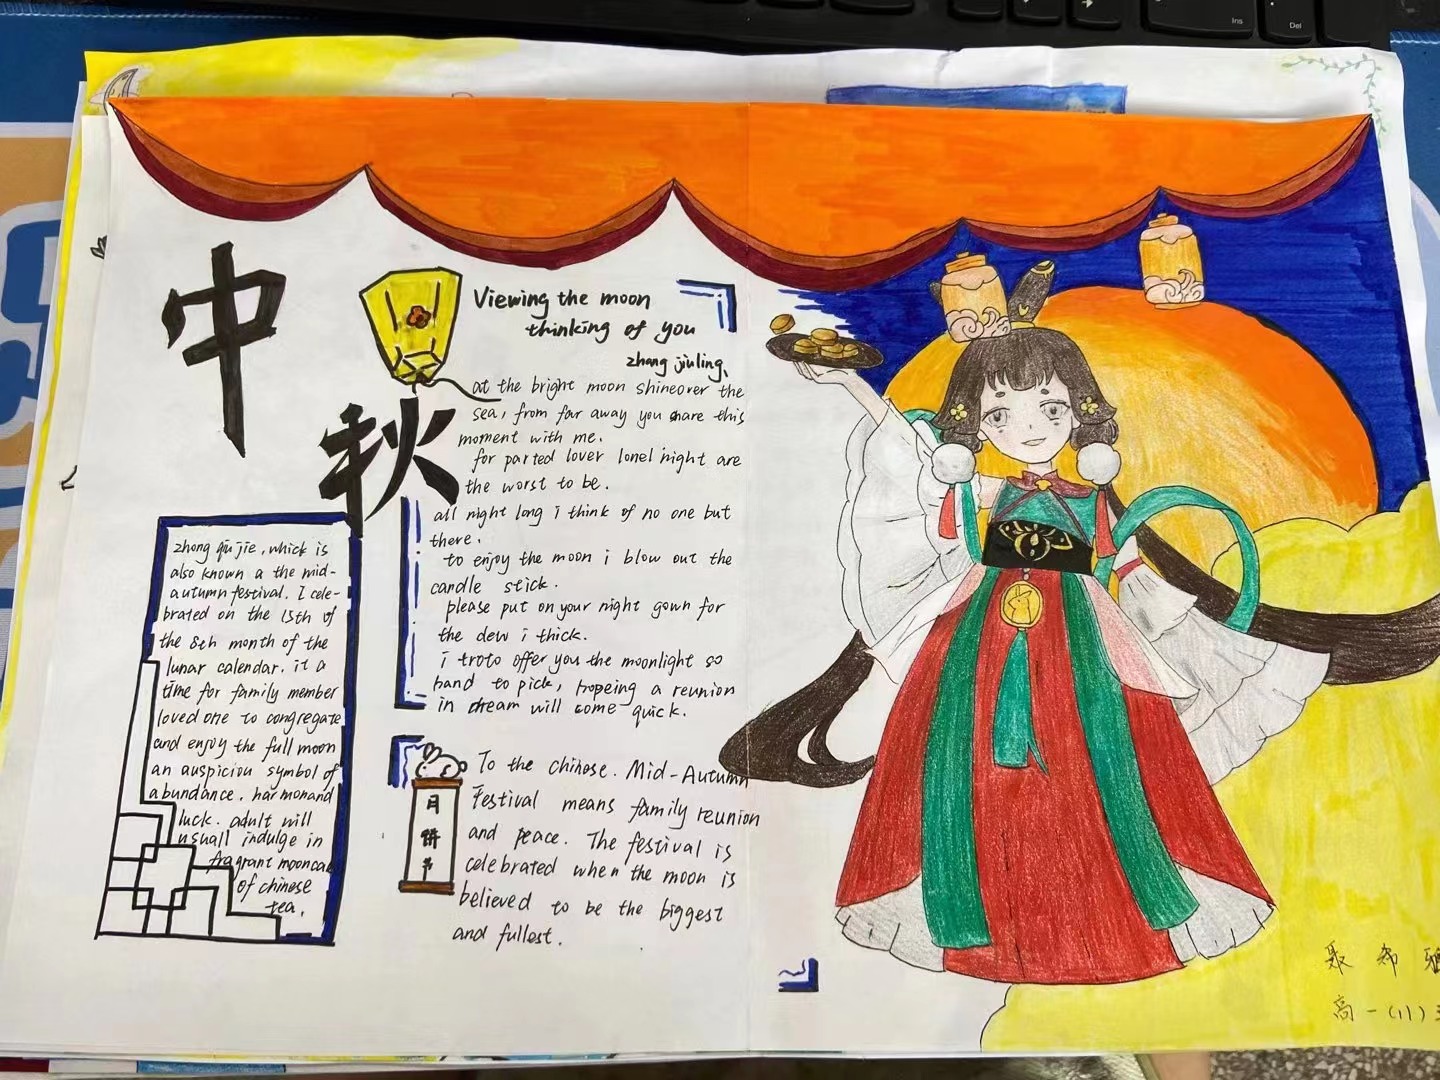 Ins
Del
中
秋
Viewing the moon
thinking of you
zhang jiuling,
at the bright moon shineover the
sea, from far away you share this
moment with me.
for parted lover lonel night are
the worst to be.
all night long i think of no one but
there.
to enjoy the moon i blow out the
candle stick.
please put on your night gown for
the dew i thick.
i troto offer you the moonlight so
hand to pick, hopeing a reunion
in dream will come quick.
zhong qiu jie, which is
also known a the mid-
autumn festival. I cele-
brated on the 15th of
the 8th month of the
lunar calendar. it a
time for family member
loved one to congregate
and enjoy the full moon
an auspiciou symbol of
abundance, harmonand
luck. adult will
usuall indulge in
fragrant mooncak
of chinese
tea.
月
饼
节
To the chinese. Mid-Autumn
Festival means family reunion
and peace. The festival is
celebrated when the moon is
believed to be the biggest
and fullest.
高一(11)